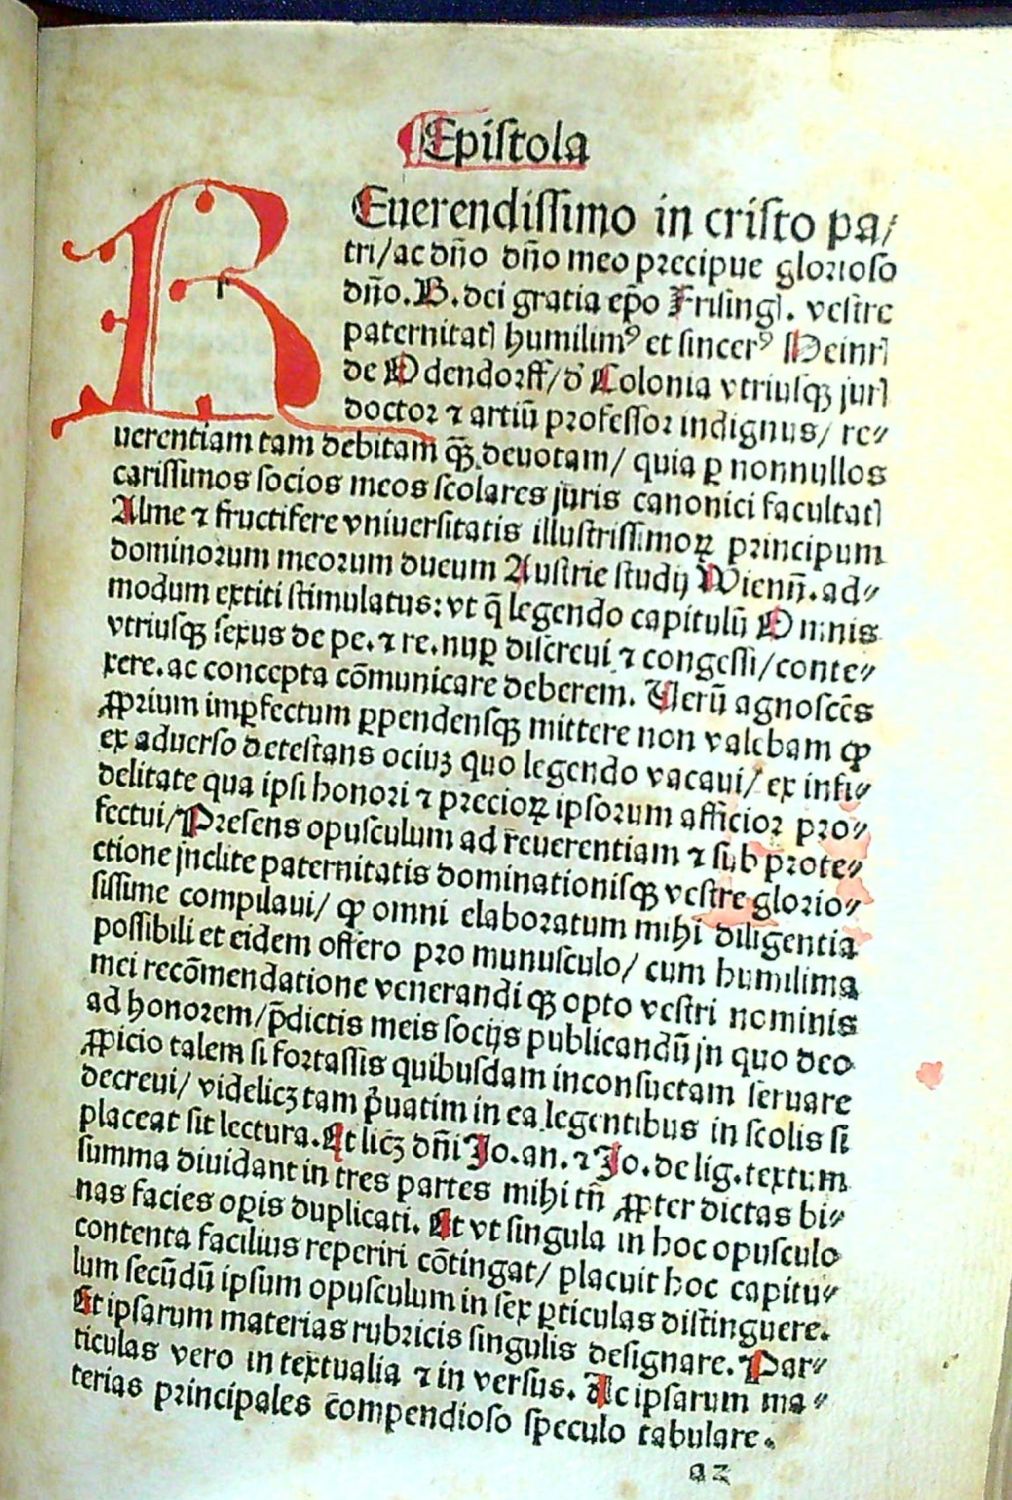 Epistola
REuerendissimo in cristo pa/
tri/ac dño dño meo precipue glorioso
dño.B.dei gratia ep̃o Frisingꝭ. vestre
paternitatꝭ humilimꝰ et sincerꝰ Heinrꝭ
de Odendorff/d' Colonia vtriusqꝫ jurꝭ
doctor ⁊ artiū professor indignus/ re⸗
uerentiam tam debitam q̃ꝫ deuotam/ quia ꝑ nonnullos
carissimos socios meos scolares juris canonici facultatꝭ
Alme ⁊ fructifere vniuersitatis illustrissimoꝝ principum
dominorum meorum ducum Austrie studij Wienñ.ad⸗
modum extiti stimulatus:vt q̄ legendo capitulū Omnis
vtriusqꝫ sexus de pe.⁊ re.nuꝑ discreui ⁊ congessi/conte⸗
xere.ac concepta cōmunicare deberem. Uerū agnoscēs
ꝓprium imꝑfectum ꝑpendensqꝫ mittere non valebam qꝙ
ex aduerso detestans ociuꝫ quo legendo vacaui/ ex infi⸗
delitate qua ipsi honori ⁊ precioꝝ ipsorum afficior pro⸗
fectui/Presens opusculum ad reuerentiam ⁊ sub prote⸗
ctione jnclite paternitatis dominationisqꝫ vestre glorio⸗
sissime compilaui/ ꝙ omni elaboratum mihi diligentia
possibili et eidem offero pro munusculo/ cum humilima
mei recōmendatione venerandiqꝫ opto vestri nominis
ad honorem/p̄dictis meis socijs publicandū jn quo deo
ꝓpicio talem si fortassis quibusdam inconsuetam seruare
decreui/ videlicꝫ tam p̲uatim in ea legentibus in scolis si
placeat sit lectura.Et licꝫ dñi Jo.an.⁊ Jo.de lig.textum
summa diuidant in tres partes mihi tñ ꝓpter dictas bi⸗
nas facies oꝑis duplicati. Et vt singula in hoc opusculo
contenta facilius reperiri cōtingat/ placuit hoc capitu⸗
lum secūdū ipsum opusculum in sex ꝑticulas distinguere.
Et ipsarum materias rubricis singulis designare. Par⸗
ticulas vero in textualia ⁊ in versus. Ac ipsarum ma⸗
terias principales compendioso speculo tabulare.
a2